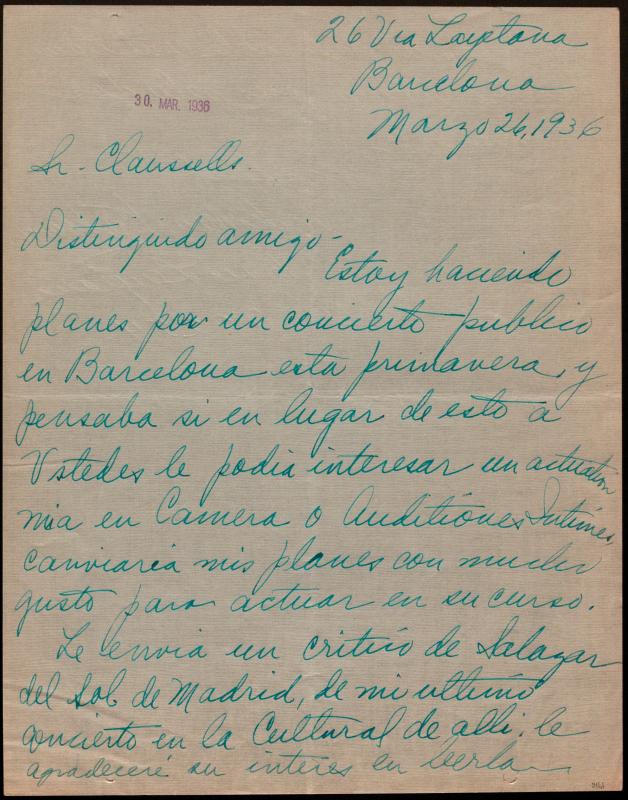 26 Via Layetana
Barcelona
Marzo 26, 1936
30. MAR. 1936
Sr. Claussells.
Distinguido amigo -
Estoy haciendo
planes por un concierto publico
en Barcelona esta primavera, y
pensaba si en lugar de esto a
Ustedes le podia interesar un actuation
mia en Camera o Auditiónes Intimes,
canviaria mis planes con mucho
gusto para actuar en su curso.
Le envia un critico de Salazar
del Sol de Madrid, de mi ultimo
concierto en la Cultural de alli. le
agradeceré su interes en leerla